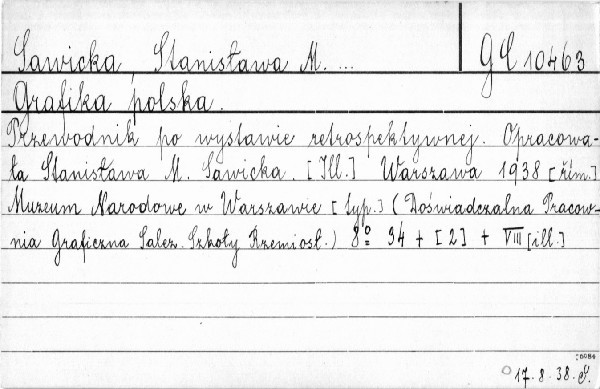 Sawicka Stanisława M. ... GE 10463
Grafika polska.
Przewodnik po wystawie retrospektywnej. Opracowa-
ła Stanisława M. Sawicka. [Ill.] Warszawa 1938 [řím.]
Muzeum Narodowe w Warszawie [typ.] (Doświadczalna Pracow-
nia Graficzna Salez. Szkoły Rzemiosł.) 8º 94 + [2] + VIII [ill.]
17. 8. 38.